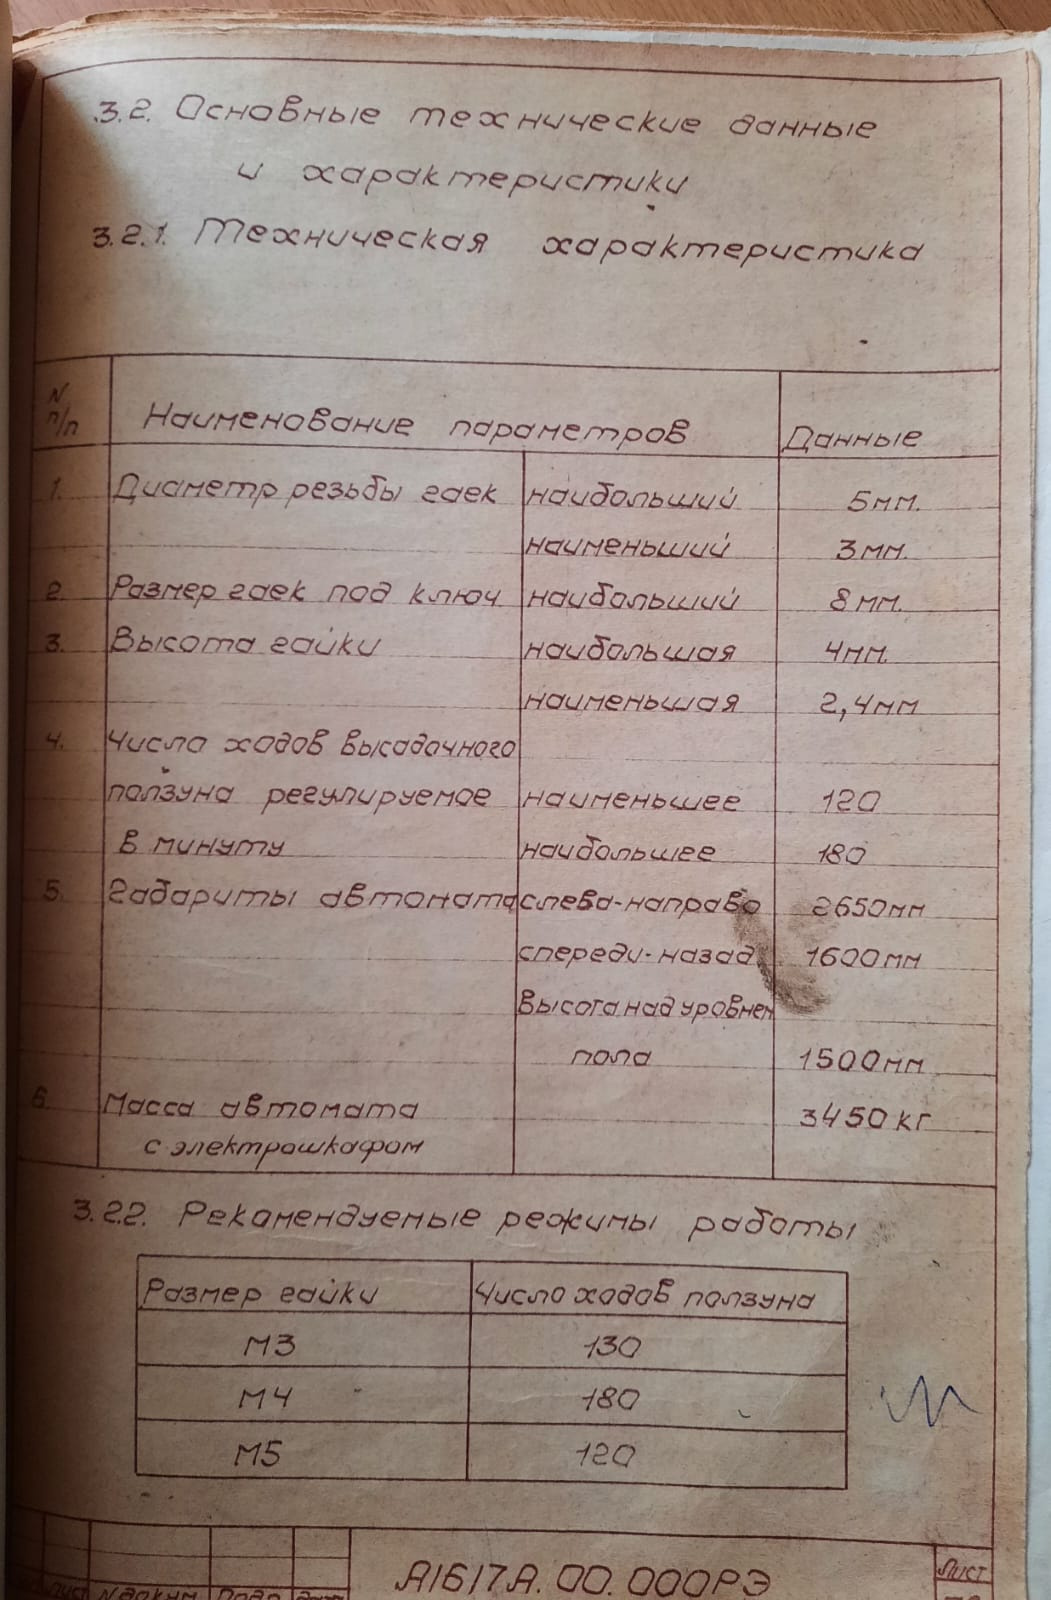 3.2. Основные технические данные
и характеристики
3.2.1. Техническая характеристика
N п/п Наименование параметров Данные
1. Диаметр резьбы гаек наибольший 5мм.
наименьший 3мм.
2. Размер гаек под ключ наибольший 8мм.
3. Высота гайки наибольшая 4мм.
наименьшая 2,4мм
4. Число ходов высадочного
ползуна регулируемое наименьшее 120
в минуту наибольшее 180
5. Габариты автомата слева-направо 2650мм
спереди-назад 1600мм
высота над уровнем
пола 1500мм
6. Масса автомата 3450кг
с электрошкафом
3.2.2. Рекомендуемые режимы работы
Размер гайки Число ходов ползуна
М3 130
М4 180
М5 120
А1617А.00.000РЭ Лист
Лист N докум. Подп.